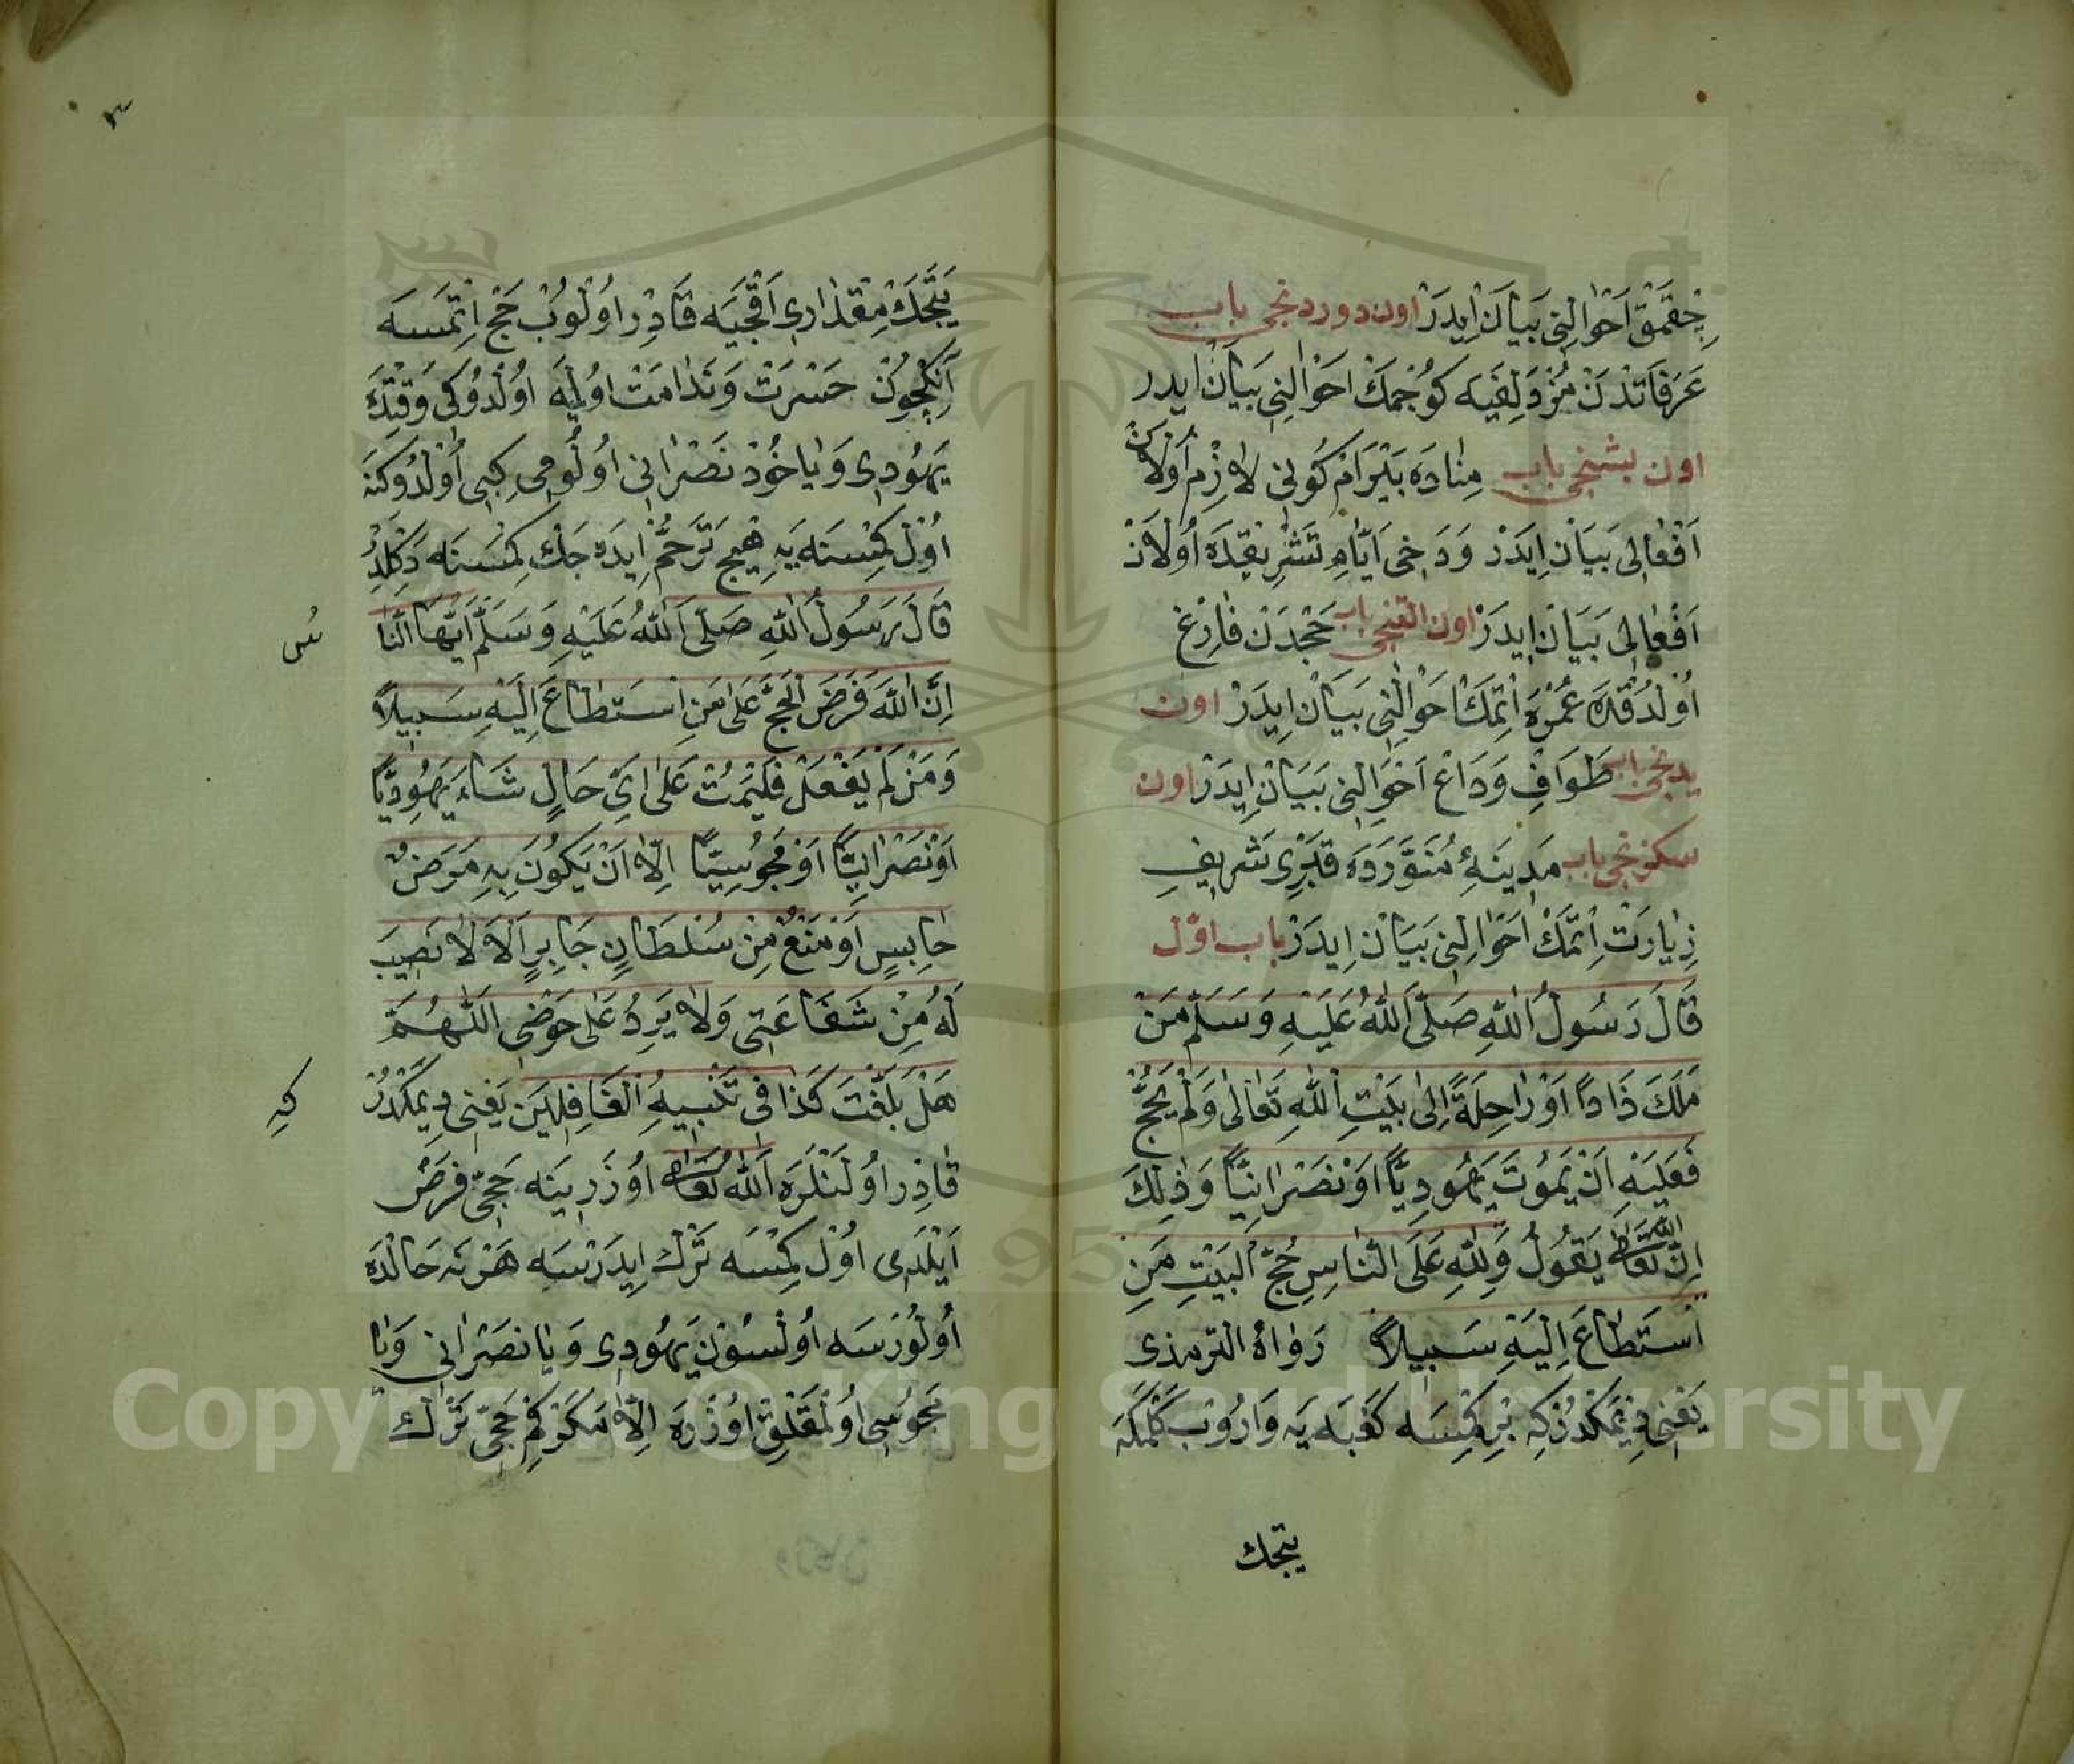 چِقمَق اَحْوالِنِى بَيَانْ اِيدَرْ اون دوردنجى باب
عَرَفَاتْدَنْ مُزْدَلِفَيَه كُوچْمَكْ احْوَالِنِى بَيَانْ ايدر
اون بشنجى باب مِنٰادَه بَيْرَامْ كُونِى لاٰزِمْ اَولاَنْ
اَفْعٰالِى بَيَانْ اِيدَرْ وَدَخِى اَيَّامِ تَشْرِيقِدَه اُولاَنْ
اَفْعٰالِى بَيَانْ اِيدَرْ اون التنجى باب حَجْدَنْ فَارِغْ
اُولْدُقْدَه عُمْرَه اِتمَكْ اَحْوَالِنِى بَيَانْ اِيدَرْ اون
يدنجى باب طَوَافِ وَدَاعْ اَحْوَالِنِى بَيَانْ اِيدَرْ اون
سكزنجى باب مَدِينَهءِ مُنَوَّرَدَه قَبْرِى شَرِيفِ
زِيٰارَتْ اِتْمَكْ اَحْوَالِنِى بَيَانْ اِيدَرْ باب اوّل
قَالَ رَسُولُ اللهِ صَلَّى اَللهُ عَلَيْهِ وَسَلَّم مَنْ
مَلَكَ ذَاداً اَوْ رٰاحِلَةً اِلٰى بَيْتِ اللهِ تَعٰالٰى وَلَمْ يَحُجَّ
فَعَلَيْهِ اَنْ يَمُوتَ يَهُودِيًّا اَوْ نَصْرٰانِيًّا وَذٰلِكَ
اِنَّ الله تَعَالٰى يَقُولُ وَلِلّٰهِ عَلَى النَّاسِ حُجّ الْبَيْتِ مَنِ
اسْتَطَاعَ اِلَيْهِ سَبِيلاً رَوٰاهُ الترمذى
يَعْنِى دِيمَكْدُرْ كِه بْرِ كِمْسَه كَعْبَه يَه وَارُوبْ كَلْمَكَه
يتجك
٣
يَتَجَكْ مِقْدَارِى اَقْچَيَه قَادِرْ اوُلُوبْ حَجْ اِتمَسَه
آنِكچُونْ حَسْرَتْ وَنَدَامَتْ اوُلَه اوُلْدُوكِى وَقِتْدَه
يَهُودِى وَيٰاخُودْ نَصْرَانِى اوُلُومِى كِبِى اُولْدُوكنَه
اوُل كِمْسَنَه يَه هِيچ تَرَحُّمْ اِيدَه جَكْ كِمْسَنَه دَكْلِدُرْ
قَالَ رَسُولُ اللهِ صَلَّى اَللهُ عَلَيْهِ وَسَلَّم اَيُّهَا النَّا
س
اِنَّ اللهَ فَرَضَ الْحَجَّ عَلٰى مَنِ اسْتَطَاعَ اِلَيْهِ سَبِيلاً
وَمَنْ لَمْ يَفْعَلْ فَلْيَمُتْ عَلٰى اَىِّ حَالٍ شَاءَ يَهُودِيًّا
اَوْ نَصْرَانِيًّا اَوْ مَجُوسِيًّا اِلاّٰ اَنْ يَكُونَ بِهِ مَرَضٌ
حٰابِسٍ اَوْ مَنْعٌ مِنْ سُلْطَانٍ جَابِرٍ اَلاَ لاٰ نَصِيبَ
لَهُ مِنْ شَفَاعَتِى وَلاٰ يَرِدُ عَلٰى حَوْضِى اَللّٰهُمَّ
هَلْ بَلَّغْتَ كَذَا فِى تَنْبِيهِ الْغَافِلِينَ يَعْنِى دِيمَكْدُرْ
كِه
قَادِرْ اوُلَنْلَرَه اَللهُ تَعَالٰى اوُزَرِينَه حَجِّى فَرْضْ
اَيْلَدِى اوُلْ كِمْسَه تَرْك اِيدَرْسَه هَرْ نَه حَالْدَه
اُولُورْسَه اُولْسُونْ يَهُودِى وَيٰا نَصْرَانِى وَيٰا
مَجُوسِى اوُلْمَقْلِقْ اوُزْرَه اِلاّٰ مَكَرْ كِمْ حَجِّى تَرْك